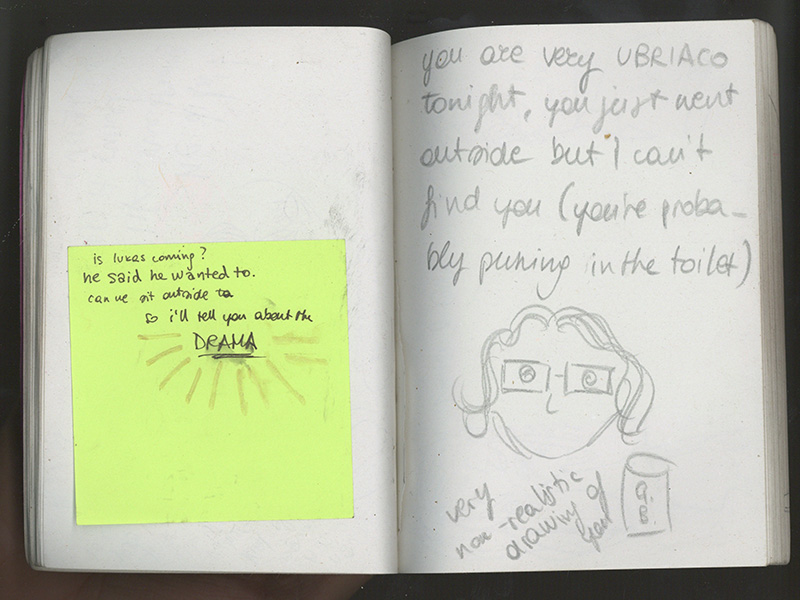 is lukas coming?
he said he wanted to.
can we sit outside to
so i'll tell you about the
DRAMA
you are very UBRIACO
tonight, you just went
outside but I can't
find you (you're proba-
bly puking in the toilet)
very
non-realistic
drawing of
G.
B.